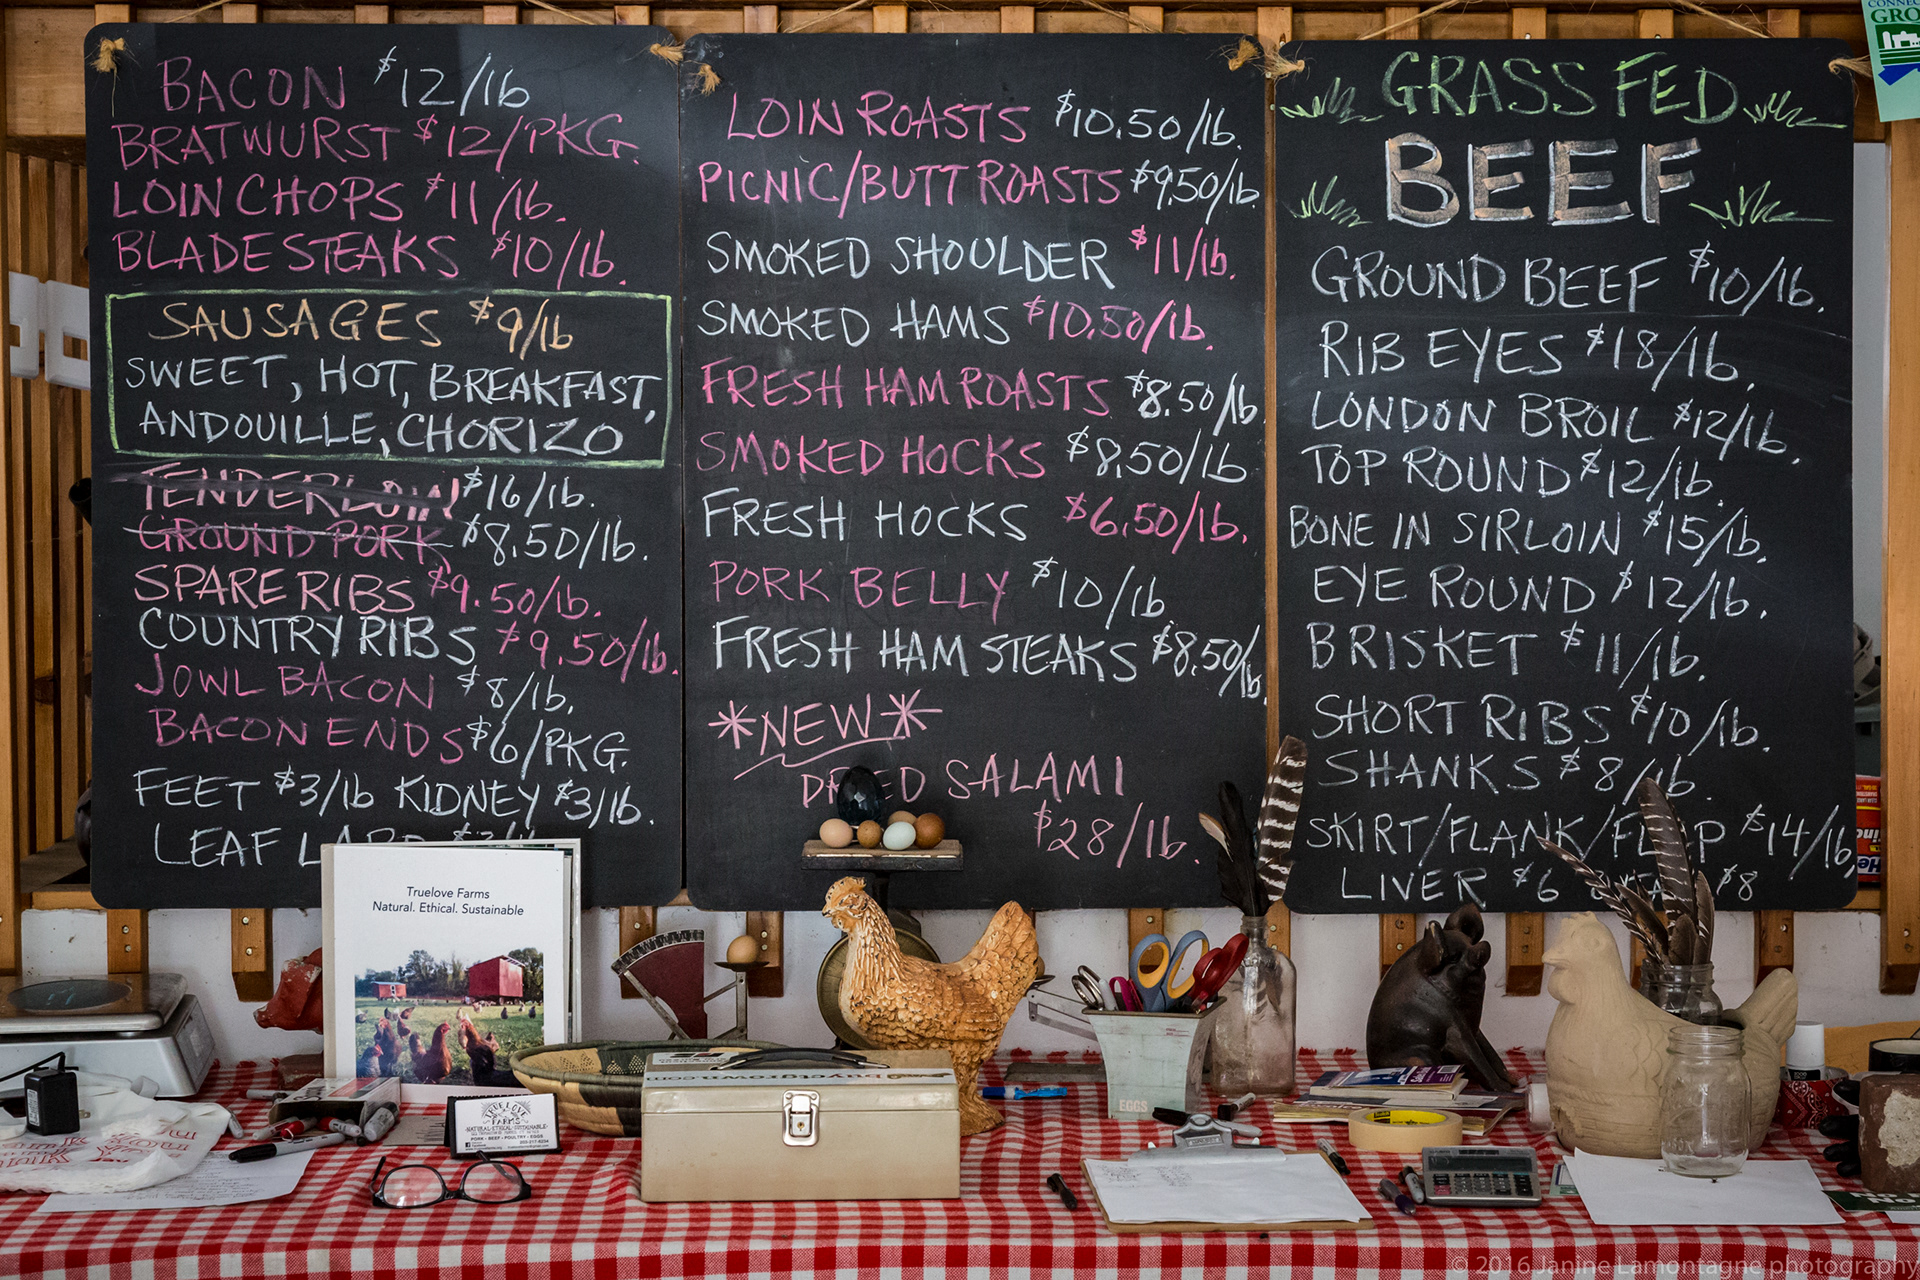 BACON $12/lb
BRATWURST $12/PKG.
LOIN CHOPS $11/lb.
BLADE STEAKS $10/lb.
SAUSAGES $9/lb
SWEET, HOT, BREAKFAST,
ANDOUILLE, CHORIZO
TENDERLOIN $16/lb.
GROUND PORK $8.50/lb.
SPARE RIBS $9.50/lb.
COUNTRY RIBS $9.50/lb.
JOWL BACON $8/lb.
BACON ENDS $6/PKG.
FEET $3/lb KIDNEY $3/lb.
LEAF LARD
LOIN ROASTS $10.50/lb.
PICNIC/BUTT ROASTS $9.50/lb.
SMOKED SHOULDER $11/lb.
SMOKED HAMS $10.50/lb.
FRESH HAM ROASTS $8.50/lb
SMOKED HOCKS $8.50/lb
FRESH HOCKS $6.50/lb.
PORK BELLY $10/lb
FRESH HAM STEAKS $8.50/lb.
*NEW*
DRIED SALAMI
$28/lb.
GRASS FED
BEEF
GROUND BEEF $10/lb.
RIB EYES $18/lb.
LONDON BROIL $12/lb.
TOP ROUND $12/lb.
BONE IN SIRLOIN $15/lb.
EYE ROUND $12/lb.
BRISKET $11/lb.
SHORT RIBS $10/lb.
SHANKS $8/lb.
SKIRT/FLANK/FLAP $14/lb
LIVER $6 $8
CONNEC
GRO
Truelove Farms
Natural. Ethical. Sustainable
TRUELOVE
FARMS
NATURAL·ETHICAL·SUSTAINABLE
PORK · BEEF · POULTRY · EGGS
buyctgrn.com
EGGS
© 2016 Janine Lamontagne photography